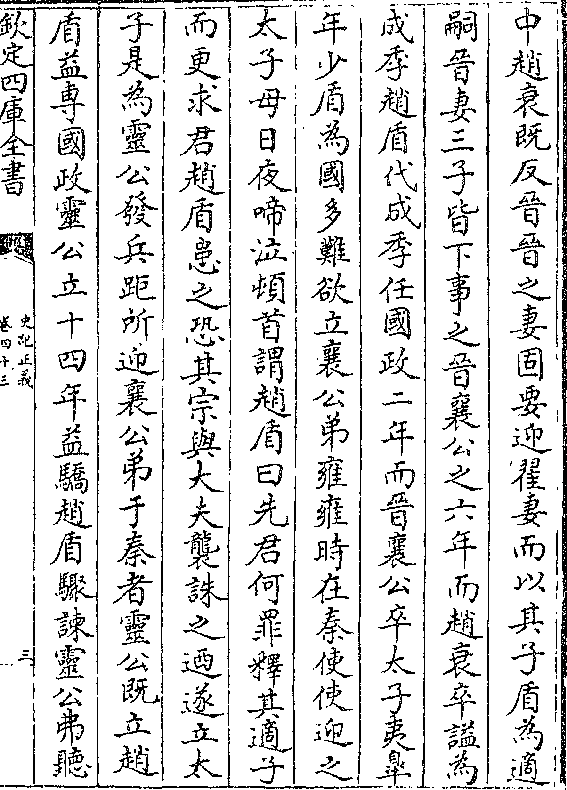 中趙衰既反晉晉之妻固要迎翟妻而以其子盾為適
嗣晉妻三子皆下事之晉襄公之六年而趙衰卒諡為
成季趙盾代成季任國政二年而晉襄公卒太子夷臯
年少盾為國多難欲立襄公弟雍雍時在秦使使迎之
太子母日夜啼泣頓首謂趙盾曰先君何罪釋其適子
而更求君趙盾患之恐其宗與大夫襲誅之迺遂立太
子是為靈公發兵距所迎襄公弟于秦者靈公既立趙
盾益専國政靈公立十四年益驕趙盾驟諫靈公弗聽
欽定四庫全書
史記正義
卷四十三
三